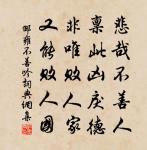 悲哉不善人
稟此凶戾德
非唯敗人家
又能敗人國
邵雍不善吟詞典網集